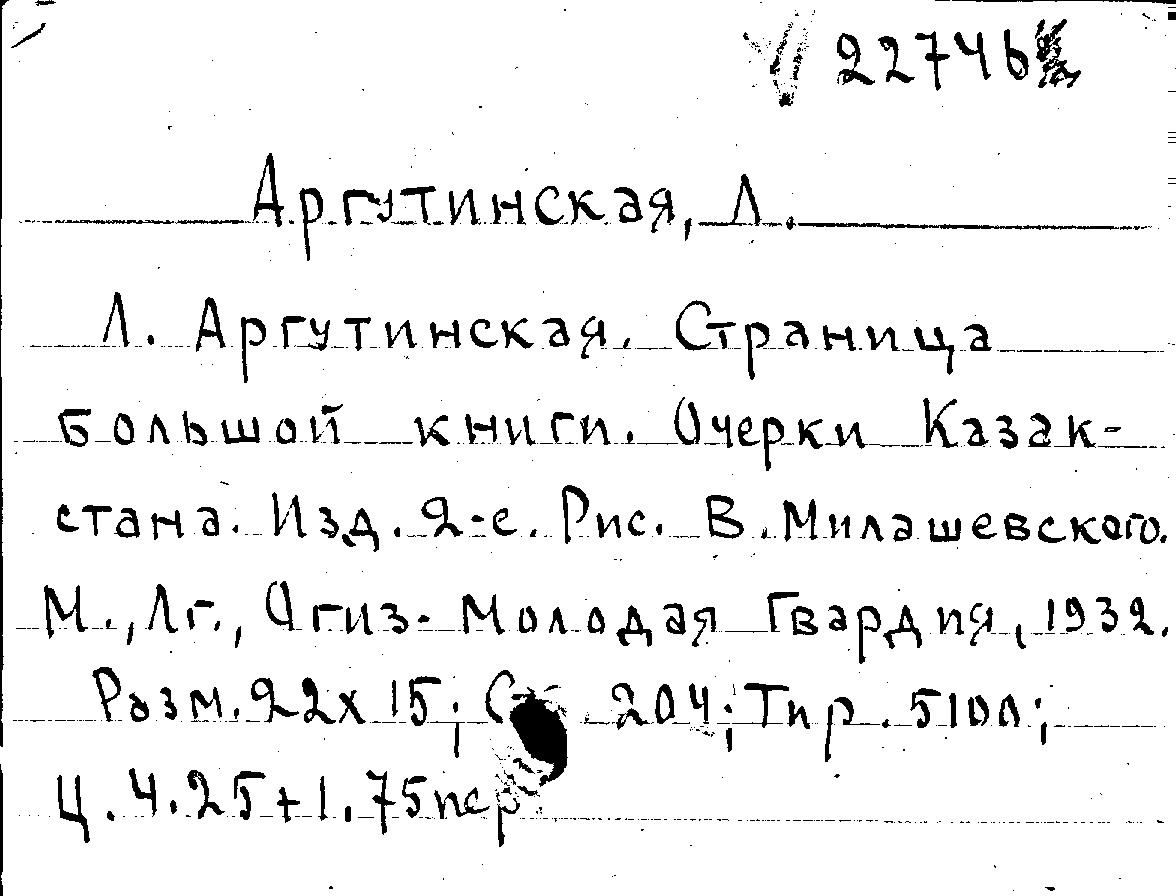 22746
Аргутинская, Л.
Л. Аргутинская. Страница
большой книги. Очерки Казак-
стана. Изд. 2-е. Рис. В. Милашевского.
М., Лг., Огиз-Молодая Гвардия, 1932.
Разм. 22х15; 204; Тир. 5100;
Ц. 4.25+1.75 пер